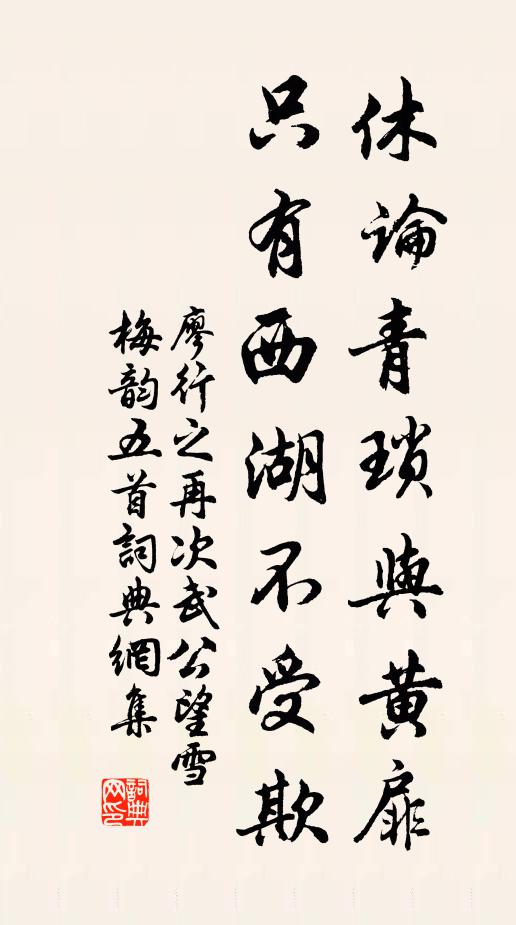 休論青瑣與黃扉
只有西湖不受欺
廖行之再次武公望雪
梅韵五首詞典網集
詞典网印